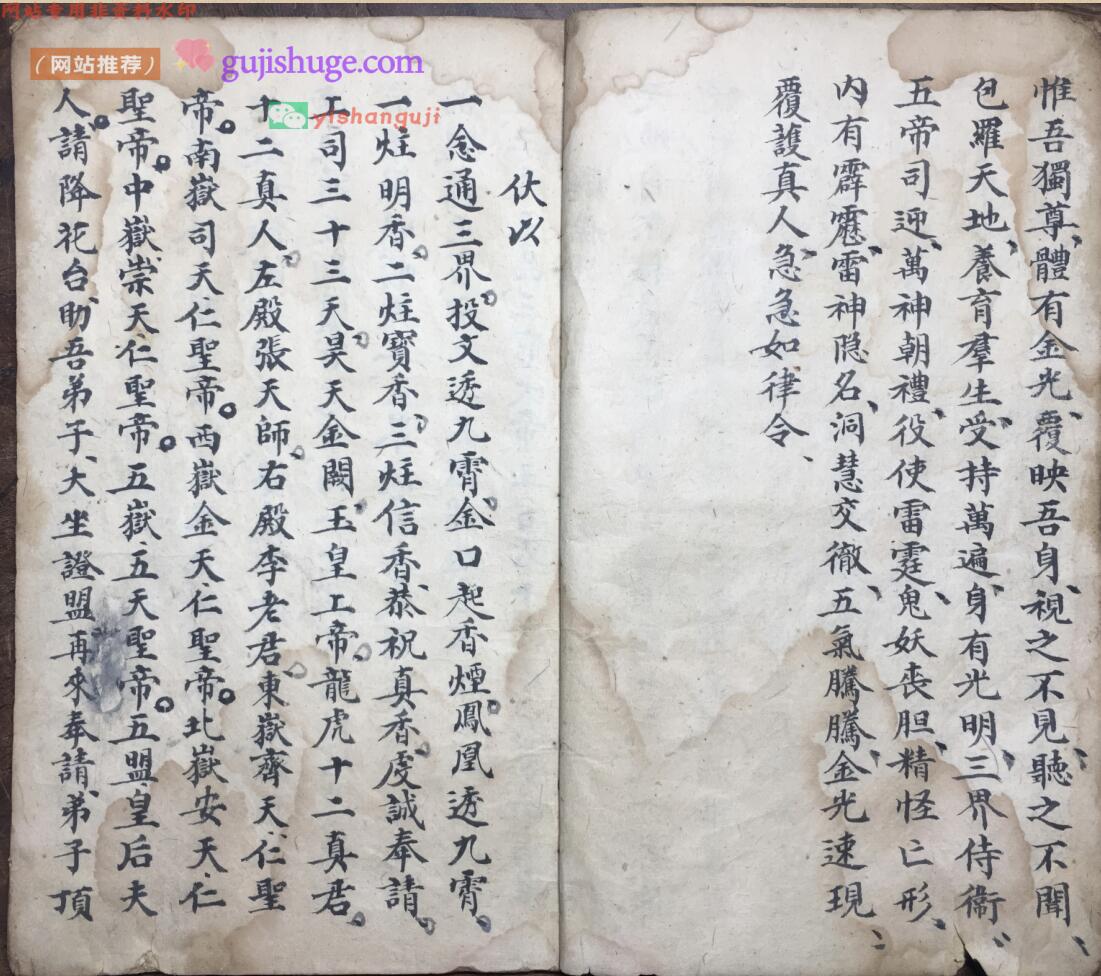 网站专用非资料水印
（网站推荐）
gujishuge.com
yishanguji
惟吾獨尊、體有金光、覆映吾身、視之不見、聽之不聞、
包羅天地、養育羣生、受持萬遍、身有光明、三界侍衛、
五帝司迎、萬神朝禮、役使雷霆、鬼妖丧胆、精怪亡形、
内有霹靂、雷神隐名、洞慧交徹、五氣騰騰、金光速現、
覆護真人、急急如律令、
伏以
一念通三界。投文透九霄。金口起香煙。鳳凰透九霄。
一炷明香。二炷寳香。三炷信香。恭祝真香。虔誠奉請。
工司三十三天。昊天金闕。玉皇工帝。龍虎十二真君。
十二真人。左殿張天師。右殿李老君。東嶽齊天、仁聖
帝。南嶽司天、仁聖帝。西嶽金天、仁聖帝。北嶽安天、仁
聖帝。中嶽崇天、仁聖帝。五嶽五天聖帝。五盟皇后夫
人。請降花台、助吾弟子、大坐證盟、再來奉請、弟子頂